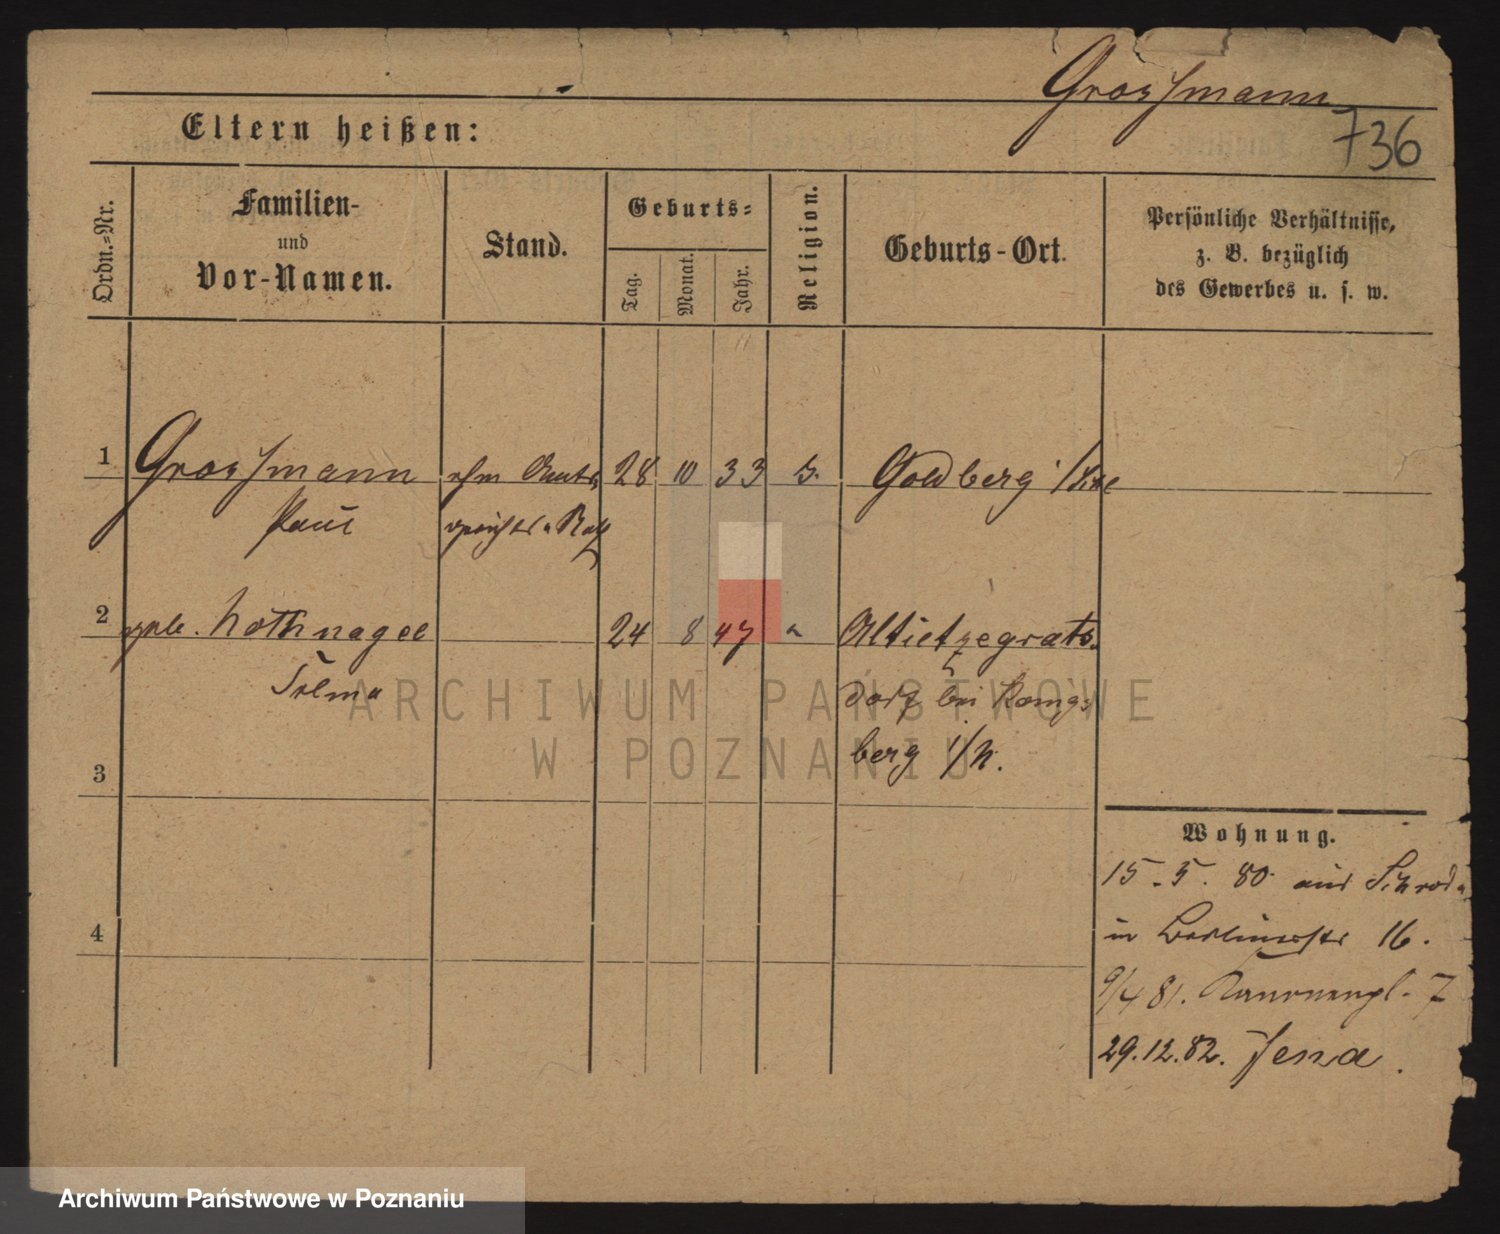 Grossmann
736
Eltern heißen:
Ordn.=Nr.
Familien-
und
Vor-Namen.
Stand.
Geburts=
Tag.
Monat.
Jahr.
Religion.
Geburts-Ort.
Persönliche Verhältnisse,
z. B. bezüglich
des Gewerbes u. s. w.
1 Grossmann 28 10 33 Goldberg
Paul
2 geb. Nothnagel 24 8 47
Selma dorf bei Königs
berg i/N.
3
Wohnung.
15. 5. 80 aus Schroda
in Berlinerstr 16.
4
9/4 81. Kanonenpl. 7
29.12.82. Jena.
ARCHIWUM PAŃSTWOWE
W POZNANIU
Archiwum Państwowe w Poznaniu